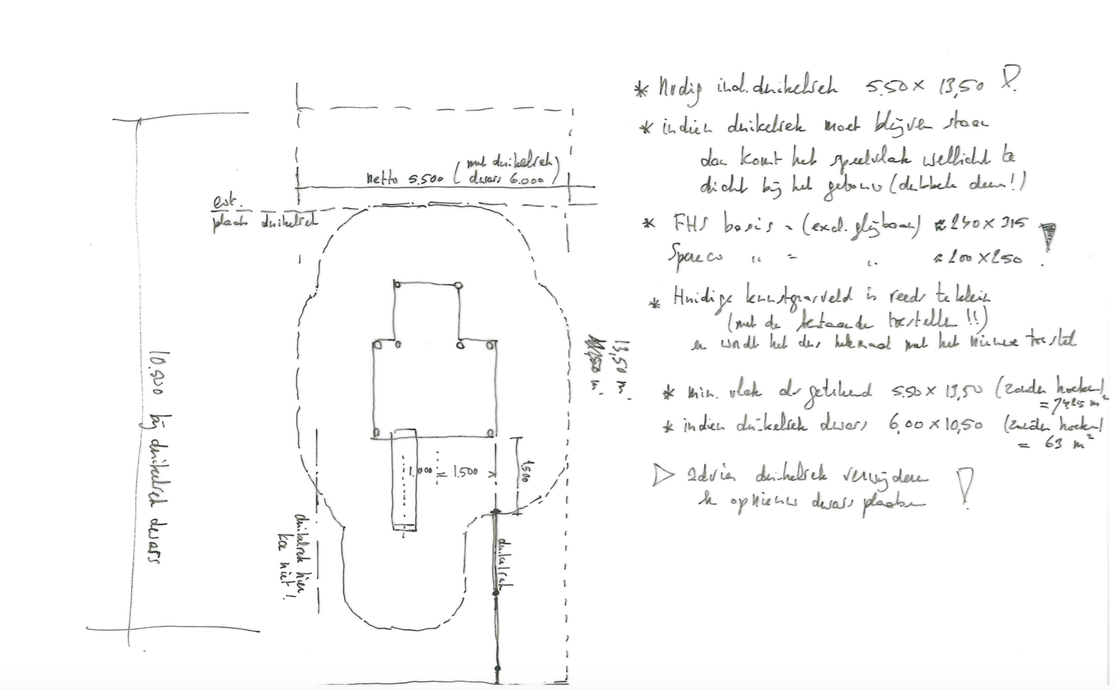 * Nodig incl. duikelrek 5.50 x 13,50 !
* indien duikelrek moet blijven staan
dan komt het speelvlak wellicht te
dicht bij het gebouw (dubbele deur!)
* FHS basis = (excl. glijbaan) ± 240 x 315
Spereco " = " ± 200 x 250 !
* Huidige kunstgrasveld is reeds te klein
(met de bestaande toestellen !!)
en wordt het dus helemaal met het nieuwe toestel
* min. vlak als getekend 5.50 x 13,50 (zonder hoeken)
= 7425 m²
* indien duikelrek dwars 6,00 x 10,50 (zonder hoeken)
= 63 m²
▷ advies duikelrek verwijderen
& opnieuw dwars plaatsen !
netto 5.500 (met duikelrek dwars 6.000)
evt.
plaats duikelrek
10.500 bij duikelrek dwars
13,50 m.
1.000
1.500
1.500
duikelrek
duikelrek hier
kan niet!